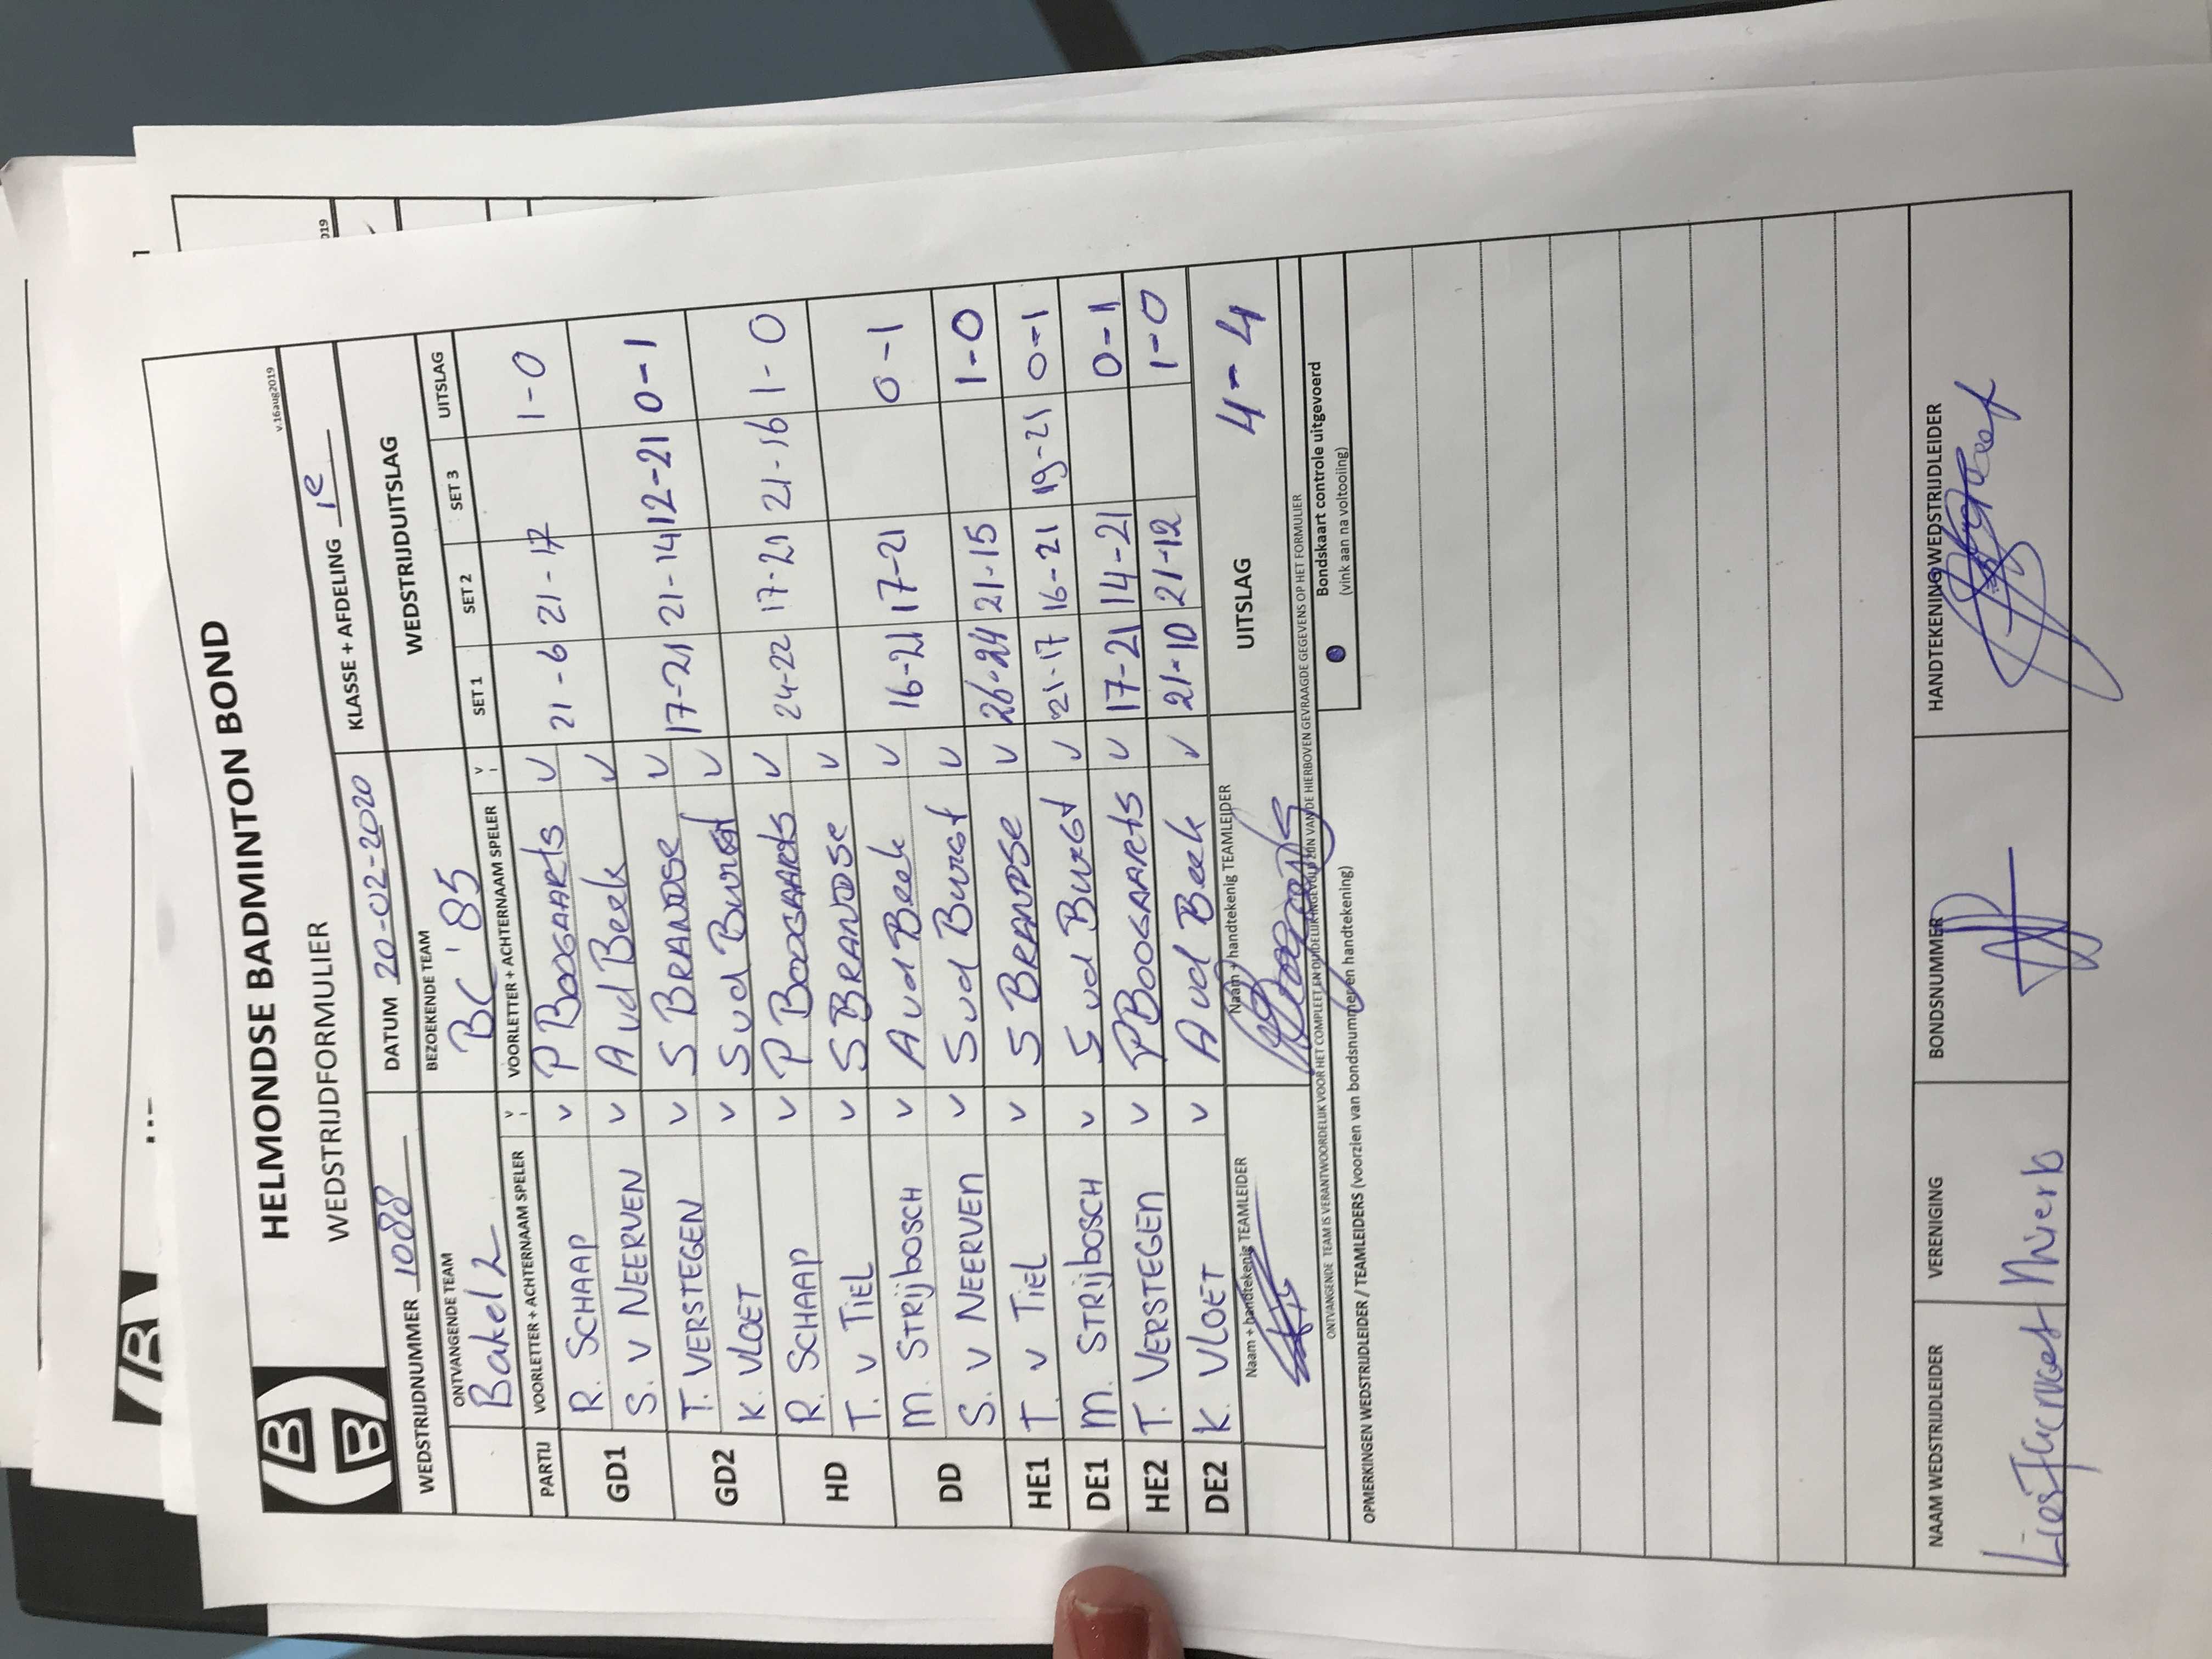 HELMONDSE BADMINTON BOND
v.16aug2019
WEDSTRIJDFORMULIER
WEDSTRIJDNUMMER 1088 DATUM 20-02-2020 KLASSE + AFDELING 1e
ONTVANGENDE TEAM BEZOEKENDE TEAM WEDSTRIJDUITSLAG
Bakel 2 BC '85
PARTIJ VOORLETTER + ACHTERNAAM SPELER V VOORLETTER + ACHTERNAAM SPELER V SET 1 SET 2 SET 3 UITSLAG
GD1 R. SCHAAP v P BOOGAARTS v 21-6 21-17 1-0
S. v NEERVEN v A vd Beek v
GD2 T. VERSTEGEN v S BRANDSE v 17-21 21-14 12-21 0-1
K. VLOET v S vd Burgt v
HD R. SCHAAP v P BOOGAARTS v 24-22 17-21 21-16 1-0
T. v TIEL v S BRANDSE v
DD M. STRIJBOSCH v A vd Beek v 16-21 17-21 0-1
S. v NEERVEN v S vd Burgt v
HE1 T. v TIEL v S BRANDSE v 26-24 21-15 1-0
DE1 M. STRIJBOSCH v S vd Burgt v 21-17 16-21 19-21 0-1
HE2 T. VERSTEGEN v P BOOGAARTS v 17-21 14-21 0-1
DE2 K. VLOET v A vd Beek v 21-10 21-12 1-0
Naam + handtekenig TEAMLEIDER Naam + handtekenig TEAMLEIDER UITSLAG 4-4
ONTVANGENDE TEAM IS VERANTWOORDELIJK VOOR HET COMPLEET EN DUIDELIJK INGEVULD ZIJN VAN DE HIERBOVEN GEVRAAGDE GEGEVENS OP HET FORMULIER
Bondskaart controle uitgevoerd
(vink aan na voltooiing)
OPMERKINGEN WEDSTRIJDLEIDER / TEAMLEIDERS (voorzien van bondsnummer en handtekening)
NAAM WEDSTRIJDLEIDER VERENIGING BONDSNUMMER HANDTEKENING WEDSTRIJDLEIDER